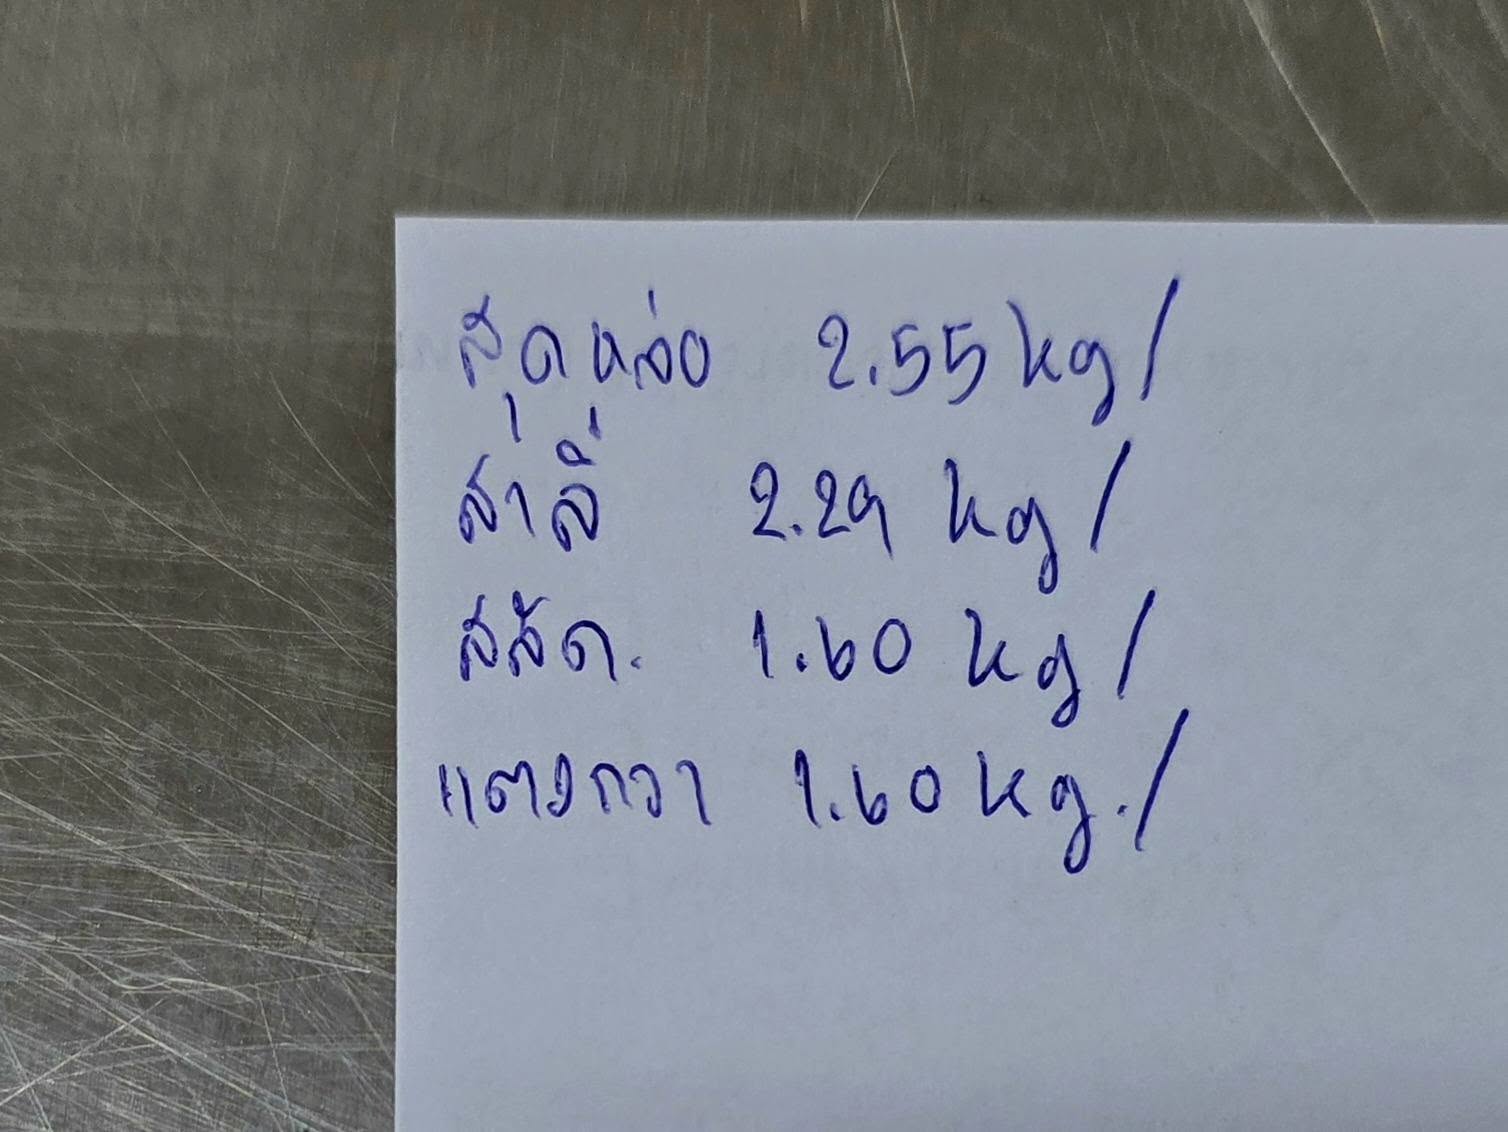 สุดหล่อ 2.55 kg /
สาลี่ 2.29 kg /
สลัด. 1.60 kg /
แตงกวา 1.60 kg. /